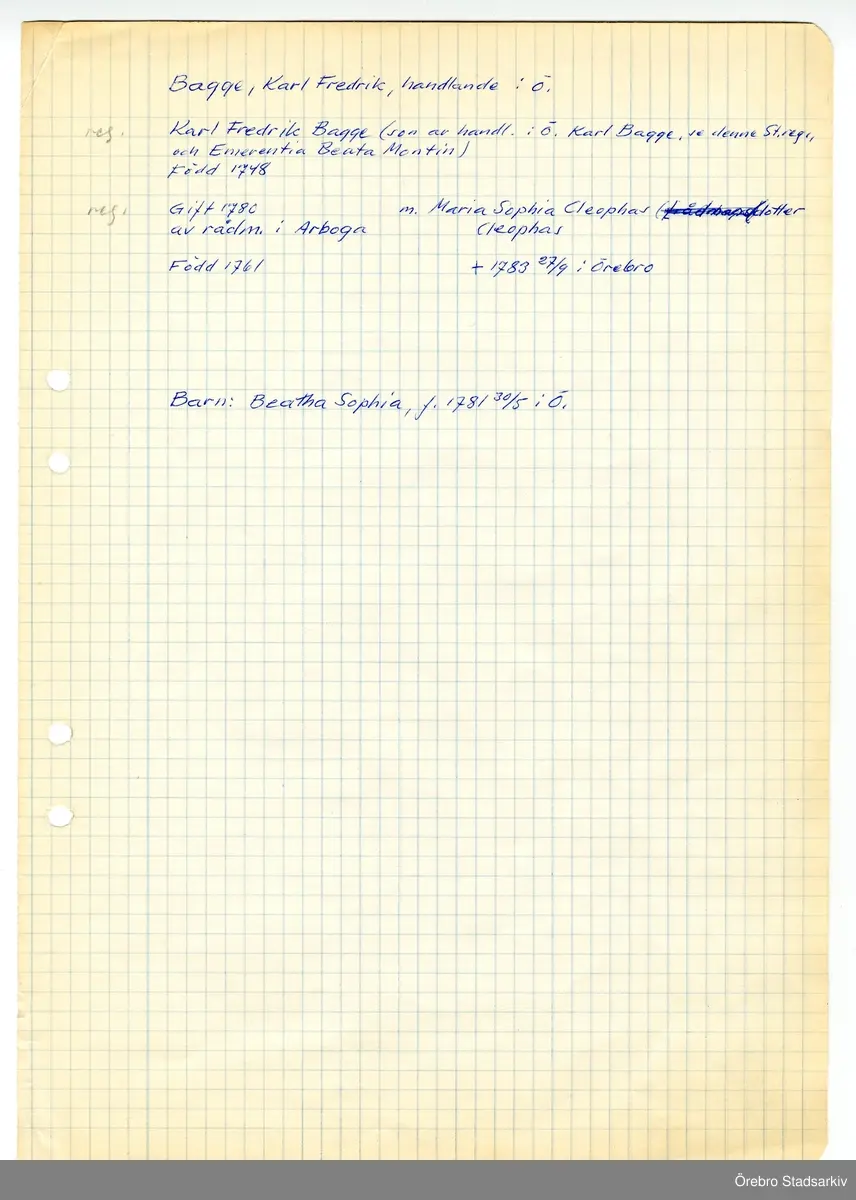 Bagge, Karl Fredrik, handlande i Ö.
reg. Karl Fredrik Bagge (son av handl. i Ö. Karl Bagge, se denne St.reg.,
och Emerentia Beata Montin)
Född 1748
reg. Gift 1780 m. Maria Sophia Cleophas (dotter
av rådm. i Arboga Cleophas
Född 1761 + 1783 27/9 i Örebro
Barn: Beatha Sophia, f. 1781 30/5 i Ö.
Örebro Stadsarkiv